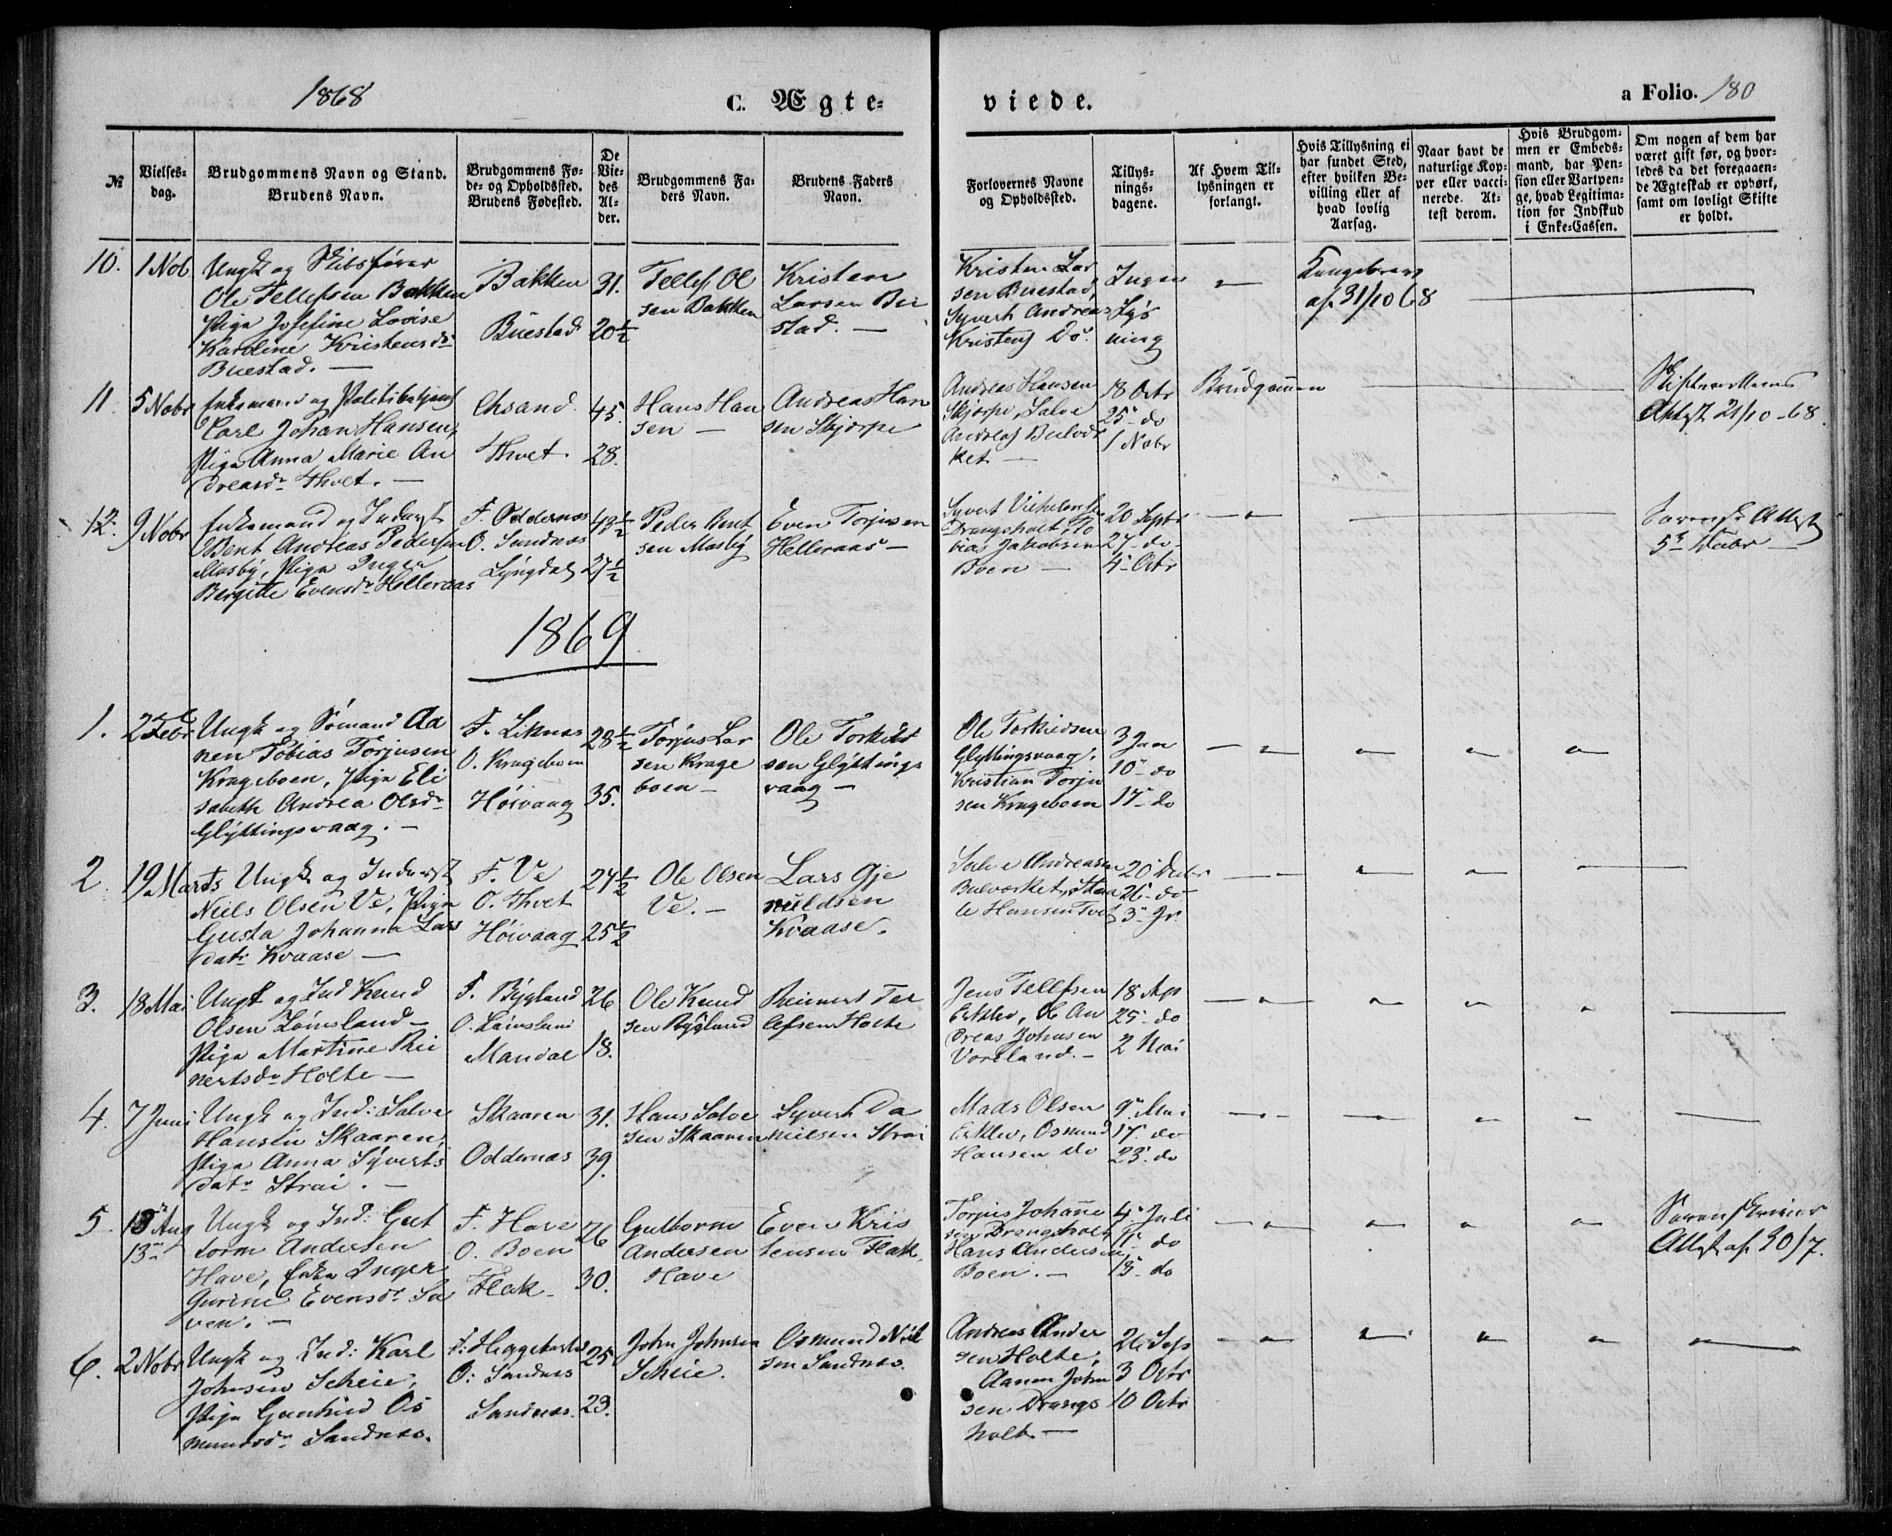 1868
C. Ægte-
viede.
a Folio. 180
№
Vielses-
dag.
Brudgommens Navn og Stand.
Brudens Navn.
Brudgommens Fø-
de- og Opholdssted.
Brudens Fødested.
De
Vie-
des
Al-
der.
Brudgommens Fa-
ders Navn.
Brudens Faders
Navn.
Forlovernes Navne
og Opholdssted.
Tillys-
nings-
dagene.
Af Hvem Til-
lysningen er
forlangt.
Hvis Tillysning ei
har fundet Sted,
efter hvilken Be-
villing eller af
hvad lovlig
Aarsag.
Naar havt de
naturlige Kop-
per eller vacci-
nerede. At-
test derom.
Hvis Brudgom-
men er Embeds-
mand, har Pen-
sion eller Vartpen-
ge, hvad Legitima-
tion for Indskud
i Enke-Cassen.
Om nogen af dem har
været gift før, og hvor-
ledes da det foregaaen-
de Ægteskab er ophørt,
samt om lovligt Skifte
er holdt.
10.
1 Nob
Ungk og Skibsfører
Ole Tellefsen Bakken
Pige Josefine Lovise
Karoline Kristensdr
Buestad. —
Bakken
Buestad
31.
20½
Tellef Ol
sen Bakken
Kristen
Larsen Bue
stad. —
Kristen Lar
sen Buestad,
Syvert Andreas
Kristens Do.
Ingen
Lys
ning
"
Kongebrev
af 31/10 68
11
5 Nobr
Enkemand og Politibetjent
Carl Johan Hansen,
Pige Anna Marie An
dreasdr Thvet. —
Chsand.
Thvet.
45.
28.
Hans Han
sen —
Andreas Han
sen Skjørpe
Andreas Hansen
Skjørpe, Salve
Andreas Bulvær
ket. —
18 Octr
25 do
1 Nobr
Brudgommen
Skifterettens
Attest 21/10-68.
12.
9 Nobr
Enkemand og Inderst
Bent Andreas Pedersen
Mosby, Pige Inger
Bergitte Evensdr Helleraas
F. Oddernes
O. Sandnæs
Lyngdal
43½
27½
Peder Bent
sen Mosby
Even Torjusen
Helleraas —
Syvert Vilhelmsen
Drangsholt, To
bias Jakobsen
Boen —
20 Septr
27 - do -
4 - Octr
— " —
Sorensk Attest
5te Nobr —
1869
1.
2 Febr
Ungk og Sømand Aa
nen Tobias Torjusen
Krageboen, Pige Eli
sabeth Andrea Olsdr
Glyttingsvaag. —
F. Liknæs
O. Krageboen
Høivaag
28½
35.
Torjus Lar
sen Krage
boen —
Ole Torkild
sen Glyttings
vaag —
Ole Torkildsen
Glyttingsvaag,
Kristian Torju
sen Krageboen
3 Jan
10 - do
17 - do
— " — " " " "
2.
19 Marts
Ungk og Inderst
Niels Olsen Ve, Pige
Gusta Johanna Lars
datr Kvaase —
F. Ve
O. Thvet
Høivaag
24½
25½
Ole Olsen
Ve. —
Lars Gje
ruldsen
Kvaase.
Salve Andreasen
Bulværket,
le Hansen Tvet
20 Decbr
26 - do
3 - Jr.
— " — " " "
3.
18 Mai
Ungk og Ind Knud
Olsen Løinsland —
Pige Martine Rei
nertsdr Holte —
F. Bygland
O. Løinsland
Mandal
26
18.
Ole Knud
sen Bygland
Reinert Tel
lefsen Holte
Jens Tellefsen
Erklev, & An
dreas Johnsen
Voreland. —
18 Apr
25 - do
2 Mai
— " — " " "
4.
7 Juni
Ungk og Ind: Salve
Hansen Skaaren,
Pige Anna Syverts
datr Strai. —
Skaaren
Oddernæs
31.
39.
Hans Salve
sen Skaaren
Syvert Da
nielsen Strai
Mads Olsen
Erklev, Osmund
Hansen do
9 Mai
17. do
23. do
— " — " " "
5.
13 Aug
13de
Ungk og Ind: Gut
torm Andersen
Have, Enke Inger
Gurine Evensdr Sa
ven. —
F. Have
O. Boen
Flak —
26
30.
Guttorm
Andersen
Have
Even Kris
tensen Flak.
Torjus Johanne
sen Drangsholt
Hans Andersen
Boen. —
4 - Juli
11 - do
18 - do
— " — " " "
Sorenskriver
Attest af 30/7.
6.
2 Nobr
Ungk og Ind: Karl
Johnsen Scheie,
Pige Gunhild Os
mundsdr Sandnæs.
O: Sandnæs
Sandnæs.
25
23.
John Johnsen
Scheie.
Osmund Niel
sen Sandnæs.
Andreas Ander
sen Holte,
Aanen John
sen Drangs
holt —
26 Sept
3 Octr
10 Octr
— " — " " " "